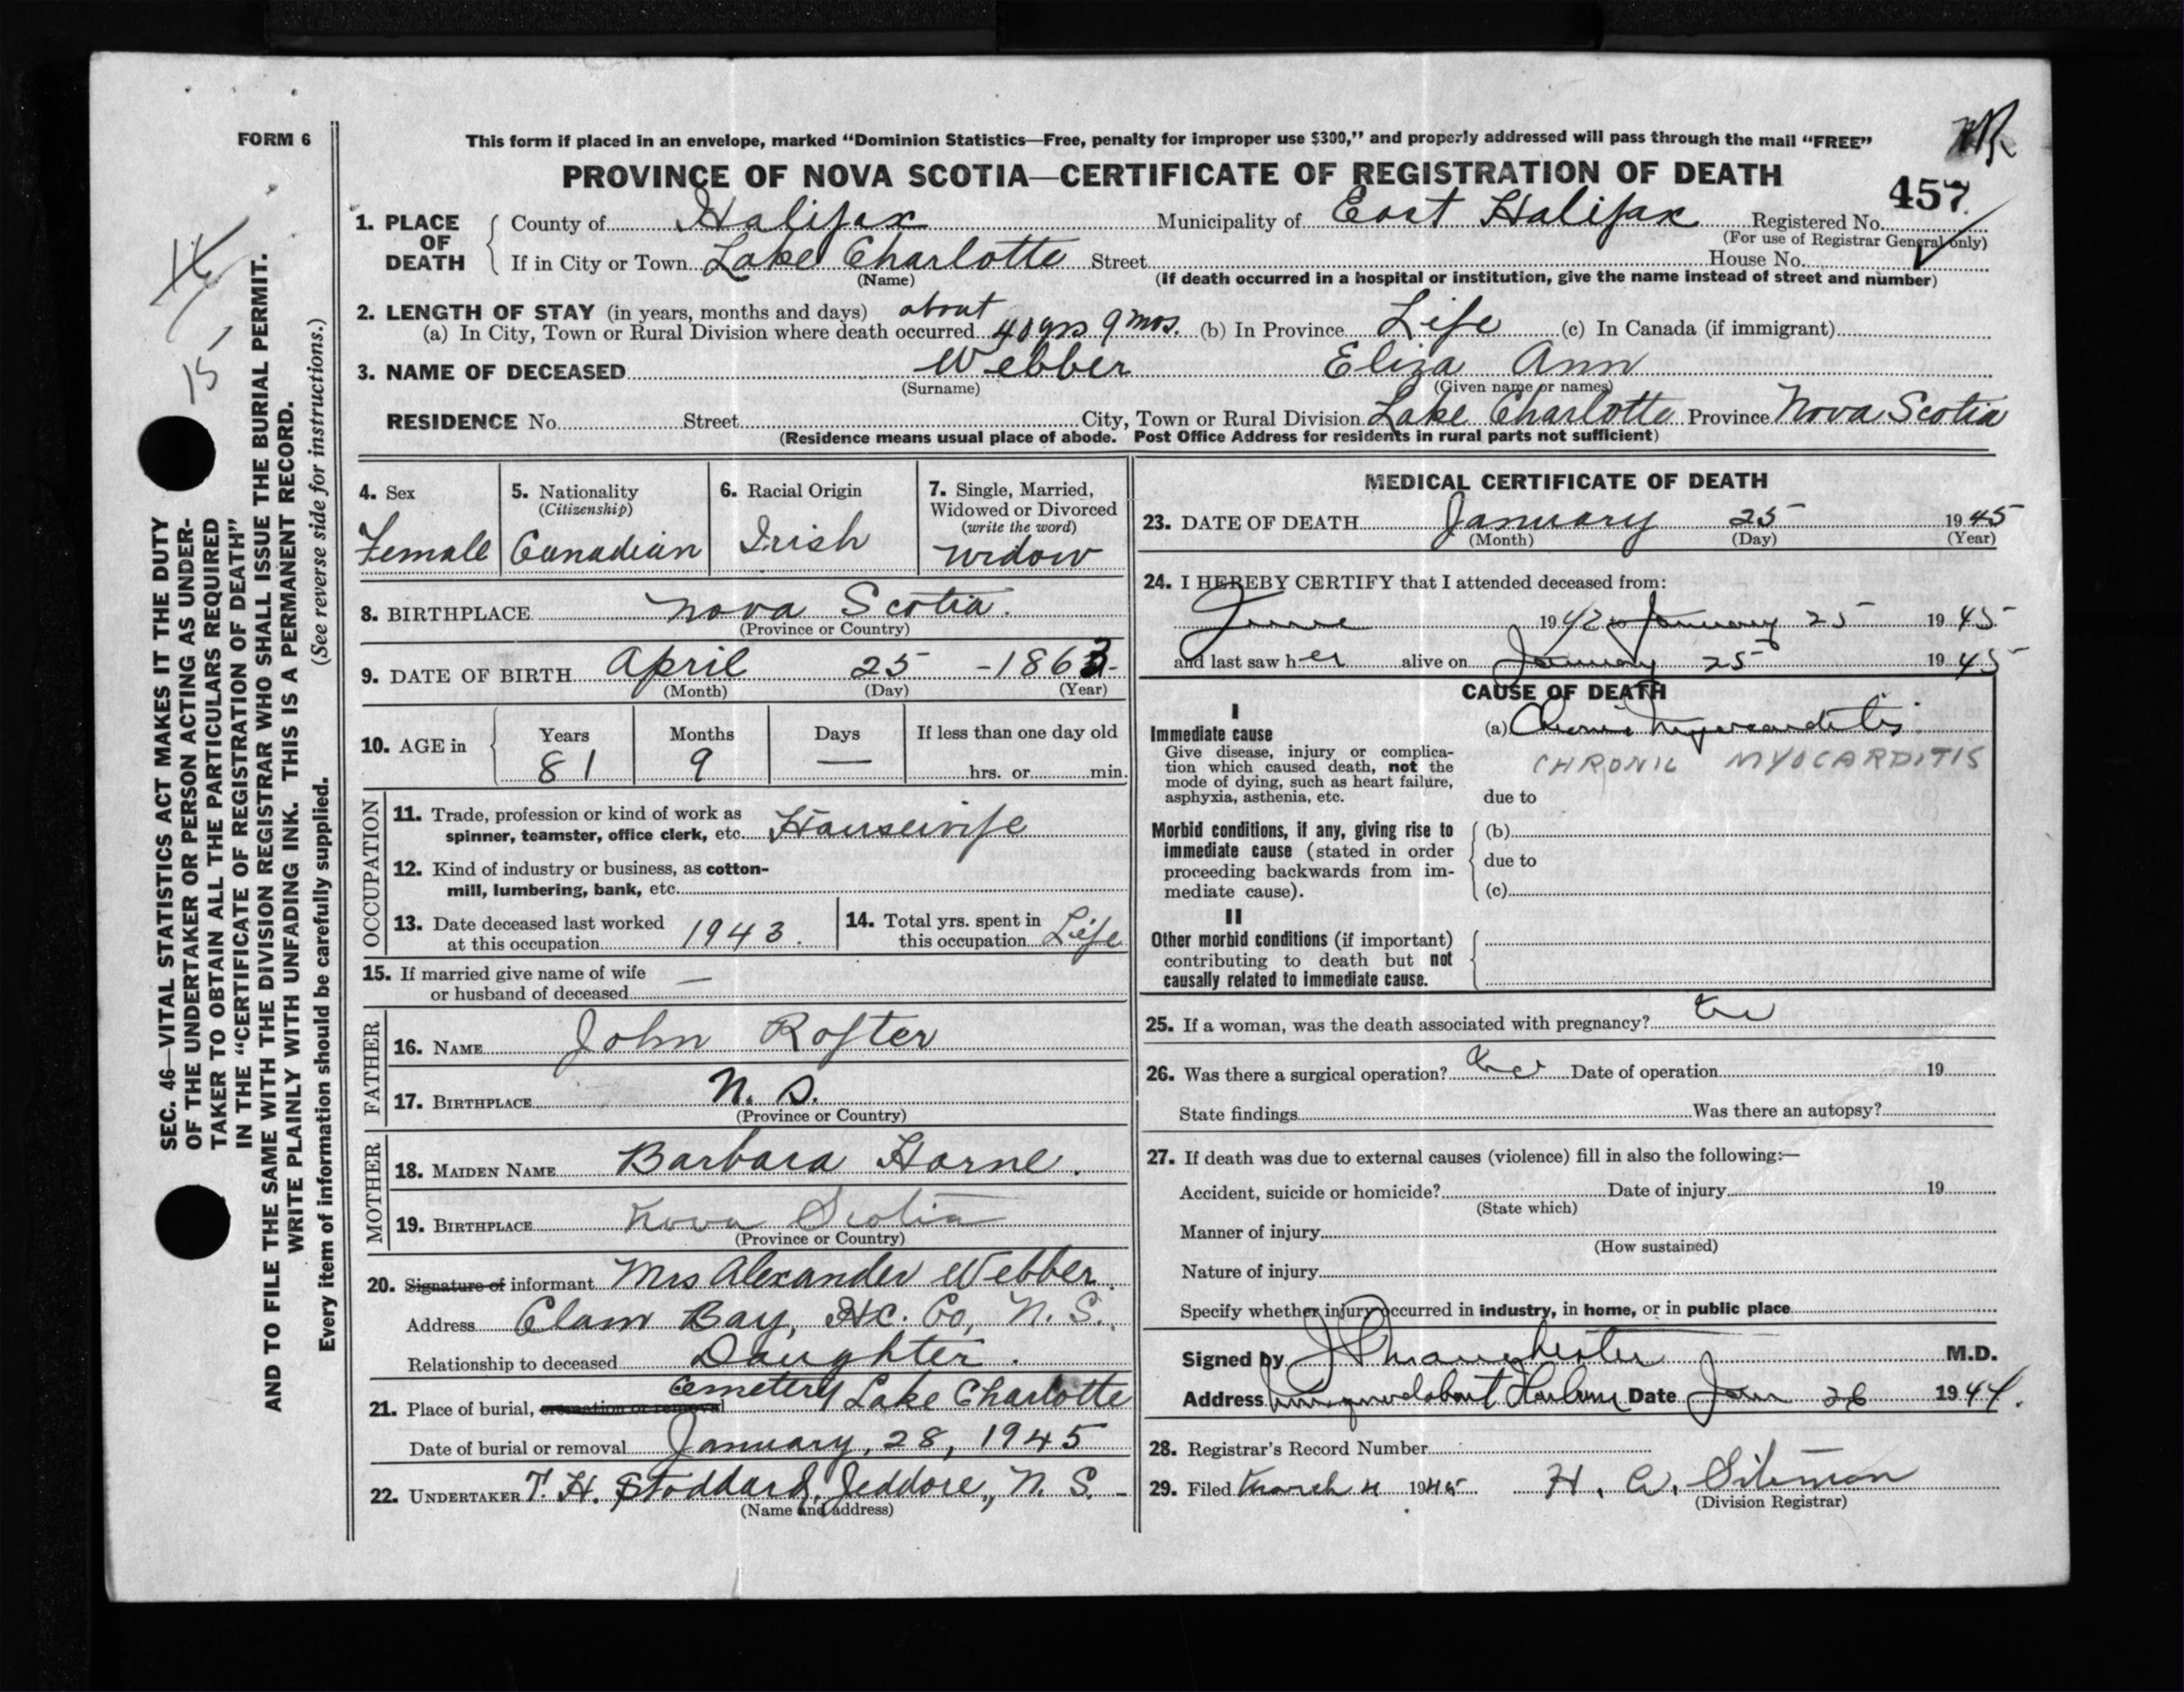 FORM 6
This form if placed in an envelope, marked “Dominion Statistics—Free, penalty for improper use $300,” and properly addressed will pass through the mail “FREE”
PROVINCE OF NOVA SCOTIA—CERTIFICATE OF REGISTRATION OF DEATH
457
1. PLACE OF DEATH
County of Halifax Municipality of East Halifax Registered No.
(For use of Registrar General only)
If in City or Town Lake Charlotte Street House No.
(Name) (If death occurred in a hospital or institution, give the name instead of street and number)
2. LENGTH OF STAY (in years, months and days) about
(a) In City, Town or Rural Division where death occurred 40 yrs 9 mos. (b) In Province Life (c) In Canada (if immigrant)
3. NAME OF DECEASED Webber Eliza Ann
(Surname) (Given name or names)
RESIDENCE No. Street City, Town or Rural Division Lake Charlotte Province Nova Scotia
(Residence means usual place of abode. Post Office Address for residents in rural parts not sufficient)
4. Sex
Female
5. Nationality
(Citizenship)
Canadian
6. Racial Origin
Irish
7. Single, Married,
Widowed or Divorced
(write the word)
Widow
8. BIRTHPLACE Nova Scotia.
(Province or Country)
9. DATE OF BIRTH April 25 -1863-
(Month) (Day) (Year)
10. AGE in
Years Months Days If less than one day old
81 9 — hrs. or min.
OCCUPATION
11. Trade, profession or kind of work as
spinner, teamster, office clerk, etc. Housewife
12. Kind of industry or business, as cotton-
mill, lumbering, bank, etc.
13. Date deceased last worked
at this occupation 1943.
14. Total yrs. spent in
this occupation Life
15. If married give name of wife
or husband of deceased —
FATHER
16. NAME John Rofter
17. BIRTHPLACE N. S.
(Province or Country)
MOTHER
18. MAIDEN NAME Barbara Horne.
19. BIRTHPLACE Nova Scotia
(Province or Country)
20. Signature of informant Mrs Alexander Webber.
Address Clam Bay, Hx. Co, N. S.
Relationship to deceased Daughter.
21. Place of burial, cremation or removal Cemetery Lake Charlotte
Date of burial or removal January, 28, 1945
22. UNDERTAKER T. H. Stoddard, Jeddore, N. S. -
(Name and address)
MEDICAL CERTIFICATE OF DEATH
23. DATE OF DEATH January 25 1945
(Month) (Day) (Year)
24. I HEREBY CERTIFY that I attended deceased from:
June 1942 to January 25 1945
and last saw her alive on January 25 1945
CAUSE OF DEATH
I
Immediate cause
Give disease, injury or complica-
tion which caused death, not the
mode of dying, such as heart failure,
asphyxia, asthenia, etc.
(a) Chronic myocarditis.
CHRONIC MYOCARDITIS
due to
Morbid conditions, if any, giving rise to
immediate cause (stated in order
proceeding backwards from im-
mediate cause).
(b)
due to
(c)
II
Other morbid conditions (if important)
contributing to death but not
causally related to immediate cause.
25. If a woman, was the death associated with pregnancy? no
26. Was there a surgical operation? no Date of operation 19
State findings Was there an autopsy?
27. If death was due to external causes (violence) fill in also the following:—
Accident, suicide or homicide? Date of injury 19
(State which)
Manner of injury
(How sustained)
Nature of injury
Specify whether injury occurred in industry, in home, or in public place
Signed by M.D.
Address Musquodoboit Harbour Date Jan 26 1944.
28. Registrar's Record Number
29. Filed March 4 1945 H. A.
(Division Registrar)
SEC. 46—VITAL STATISTICS ACT MAKES IT THE DUTY
OF THE UNDERTAKER OR PERSON ACTING AS UNDER-
TAKER TO OBTAIN ALL THE PARTICULARS REQUIRED
IN THE “CERTIFICATE OF REGISTRATION OF DEATH”
AND TO FILE THE SAME WITH THE DIVISION REGISTRAR WHO SHALL ISSUE THE BURIAL PERMIT.
WRITE PLAINLY WITH UNFADING INK. THIS IS A PERMANENT RECORD.
Every item of information should be carefully supplied. (See reverse side for instructions.)
15